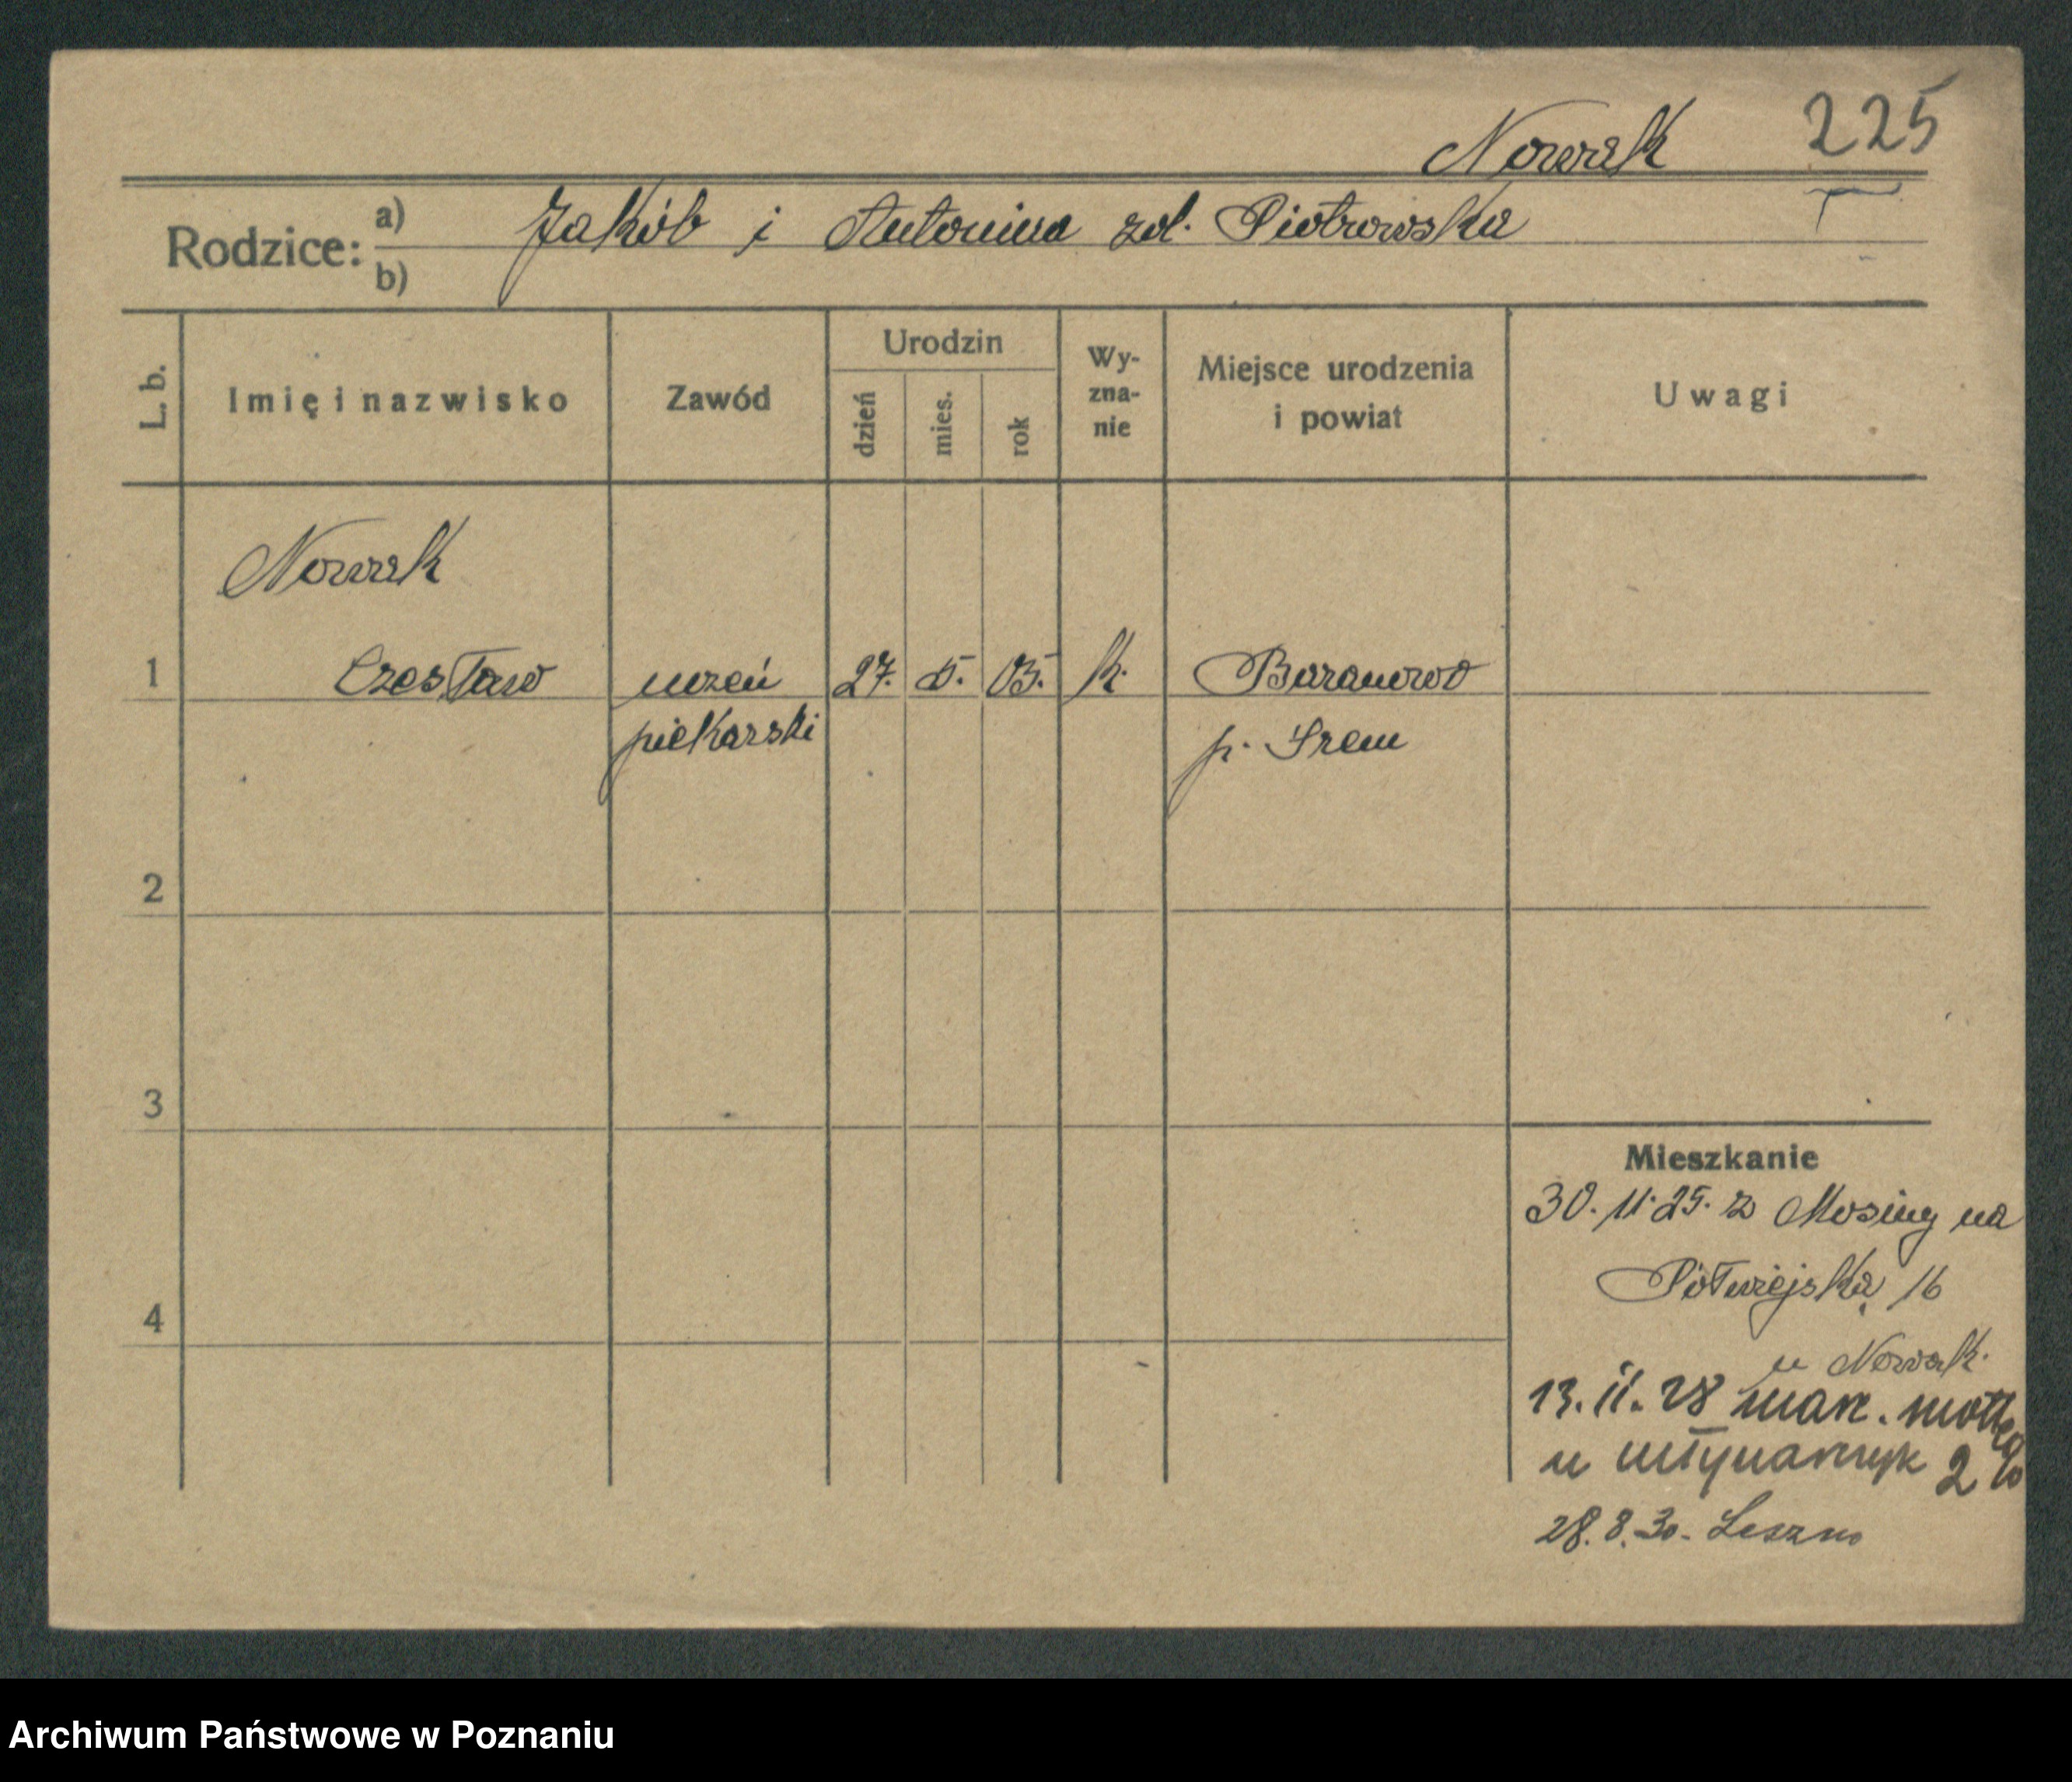 Nowak 225
Rodzice: a) Jakób i Antonina zd. Piotrowska
b)
L. b. Imię i nazwisko Zawód Urodzin dzień mies. rok Wyznanie Miejsce urodzenia i powiat Uwagi
Nowak
1 Czesław uczeń 27. 5. 05. k. Baranowo
piekarski p. Srem
2
3
4
Mieszkanie
30. 11. 25. z Mosiny na
Półwiejską 16
u Nowak.
13. 11. 28 marc. motte
u młynarczyk
28. 8. 30. Leszno
Archiwum Państwowe w Poznaniu